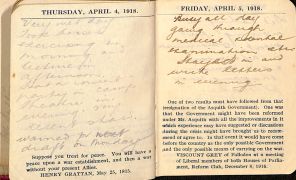 THURSDAY, APRIL 4, 1918.
Very wet day
Took horses
exercising in
morning
lecture in
afternoon
camp
Theatre in
evening
warned to next
draft on Monday
Suppose you trust for peace. You will have a
peace upon a war establishment, and then a war
without your present Allies.
HENRY GRATTAN, May 25, 1815.
FRIDAY, APRIL 5, 1918.
Busy all day
going through
medical dental
examination etc
Stayed in and
wrote letters
in evening
One of two results must have followed from that
resignation of the Asquith Government. One was
that the Government might have been reformed
under Mr. Asquith with all the improvements in it
which experience may have suggested or discussions
during the crisis might have brought us to recom-
mend or agree to. In that event it would have come
before the country as the only possible Government
and the only possible means of carrying on the war.
VISCOUNT GREY of Fallodon at a meeting
of Liberal members of both Houses of Parlia-
ment, Reform Club, December 8, 1916.